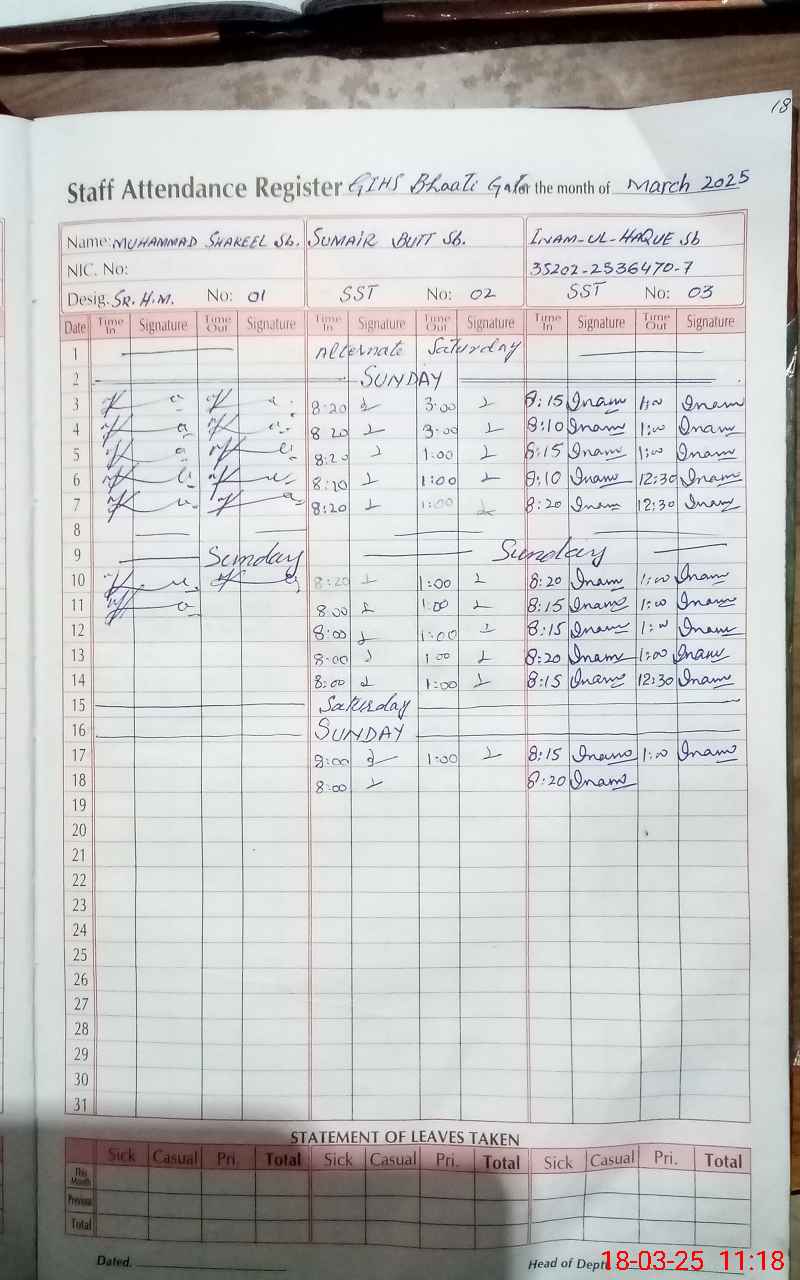 18
Staff Attendance Register GIHS Bhaati Gate for the month of March 2025
Name: MUHAMMAD SHAKEEL Sb. SUMAIR BUTT Sb. INAM-UL-HAQUE Sb
NIC. No: 35202-2536470-7
Desig. SR. H.M. No: 01 SST No: 02 SST No: 03
Date Time In Signature Time Out Signature Time In Signature Time Out Signature Time In Signature Time Out Signature
1 Alternate Saturday
2 SUNDAY
3 8:20 3:00 8:15 Inam 1:00 Inam
4 8 20 3:00 8:10 Inam 1:00 Inam
5 8:20 1:00 8:15 Inam 1:00 Inam
6 8:20 1:00 8:10 Inam 12:30 Inam
7 8:20 1:00 8:20 Inam 12:30 Inam
8
9 Sunday Sunday
10 8:20 1:00 8:20 Inam 1:00 Inam
11 8:00 1:00 8:15 Inam 1:00 Inam
12 8:00 1:00 8:15 Inam 1:00 Inam
13 8:00 1 00 8:20 Inam 1:00 Inam
14 8:00 1:00 8:15 Inam 12:30 Inam
15 Saturday
16 SUNDAY
17 8:00 1:00 8:15 Inam 1:00 Inam
18 8:00 8:20 Inam
19
20
21
22
23
24
25
26
27
28
29
30
31
STATEMENT OF LEAVES TAKEN
Sick Casual Pri. Total Sick Casual Pri. Total Sick Casual Pri. Total
This Month
Previous
Total
Dated. Head of Dept.
18-03-25 11:18